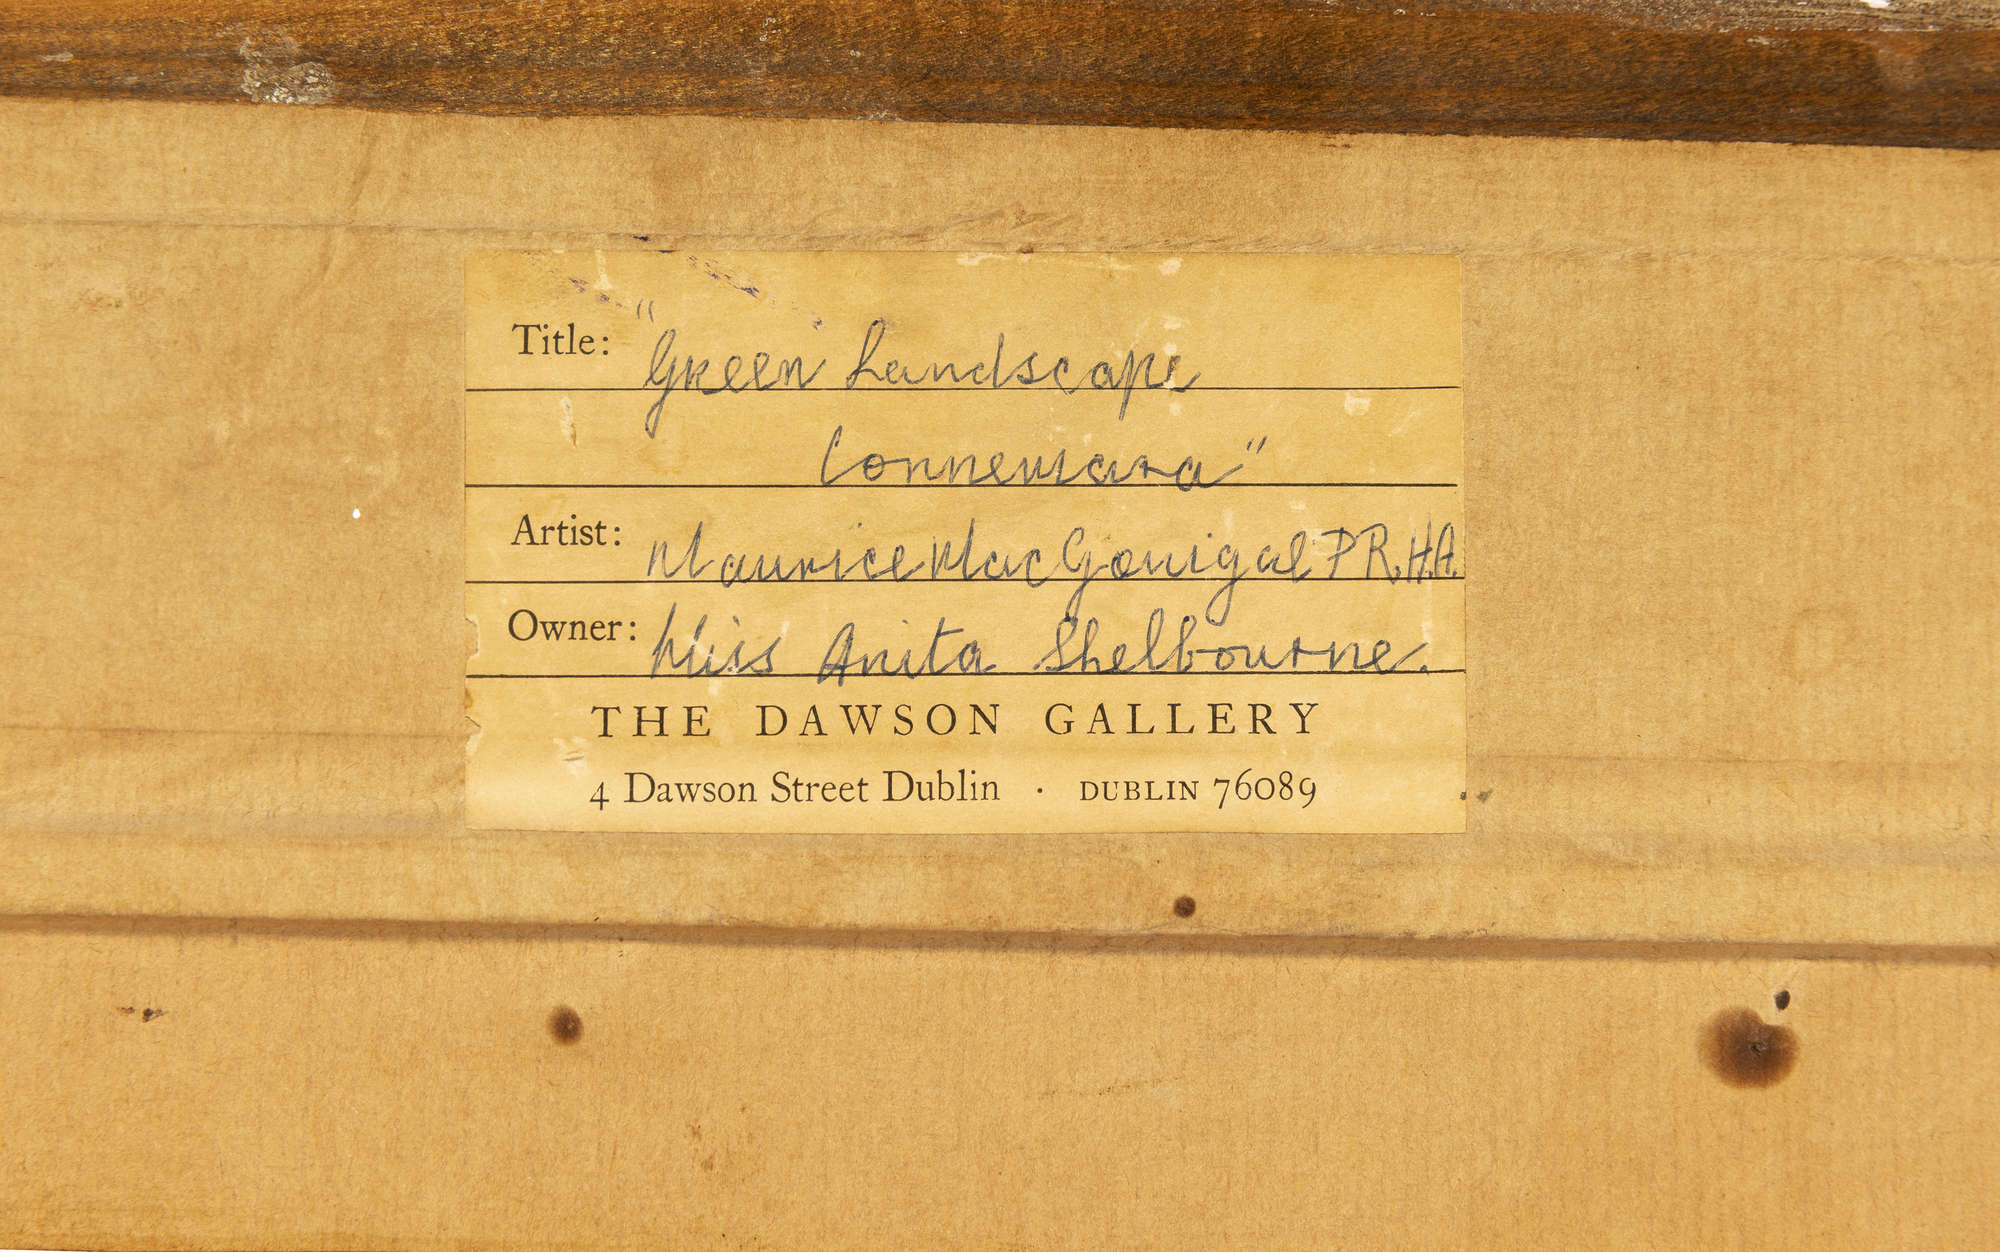 Title: "Green Landscape
Connemara"
Artist: Maurice MacGonigal P.R.H.A.
Owner: Miss Anita Shelbourne.
THE DAWSON GALLERY
4 Dawson Street Dublin · DUBLIN 76089